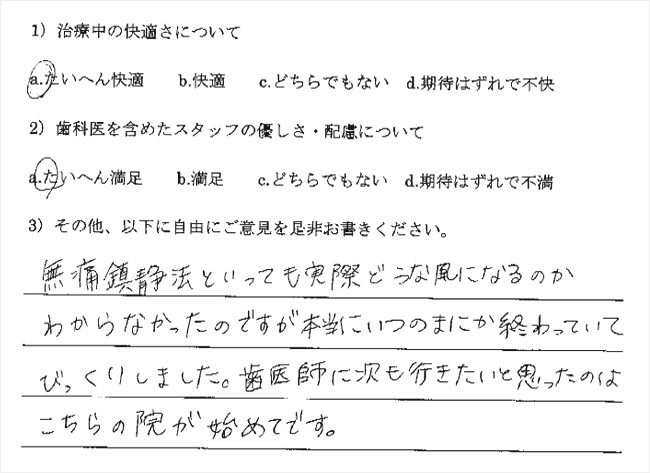 1) 治療中の快適さについて
a.たいへん快適 b.快適 c.どちらでもない d.期待はずれで不快
2) 歯科医を含めたスタッフの優しさ・配慮について
a.たいへん満足 b.満足 c.どちらでもない d.期待はずれで不満
3) その他、以下に自由にご意見を是非お書きください。
無痛鎮静法といっても実際どうな風になるのか
わからなかったのですが本当にいつのまにか終わっていて
びっくりしました。歯医師に次も行きたいと思ったのは
こちらの院が始めてです。